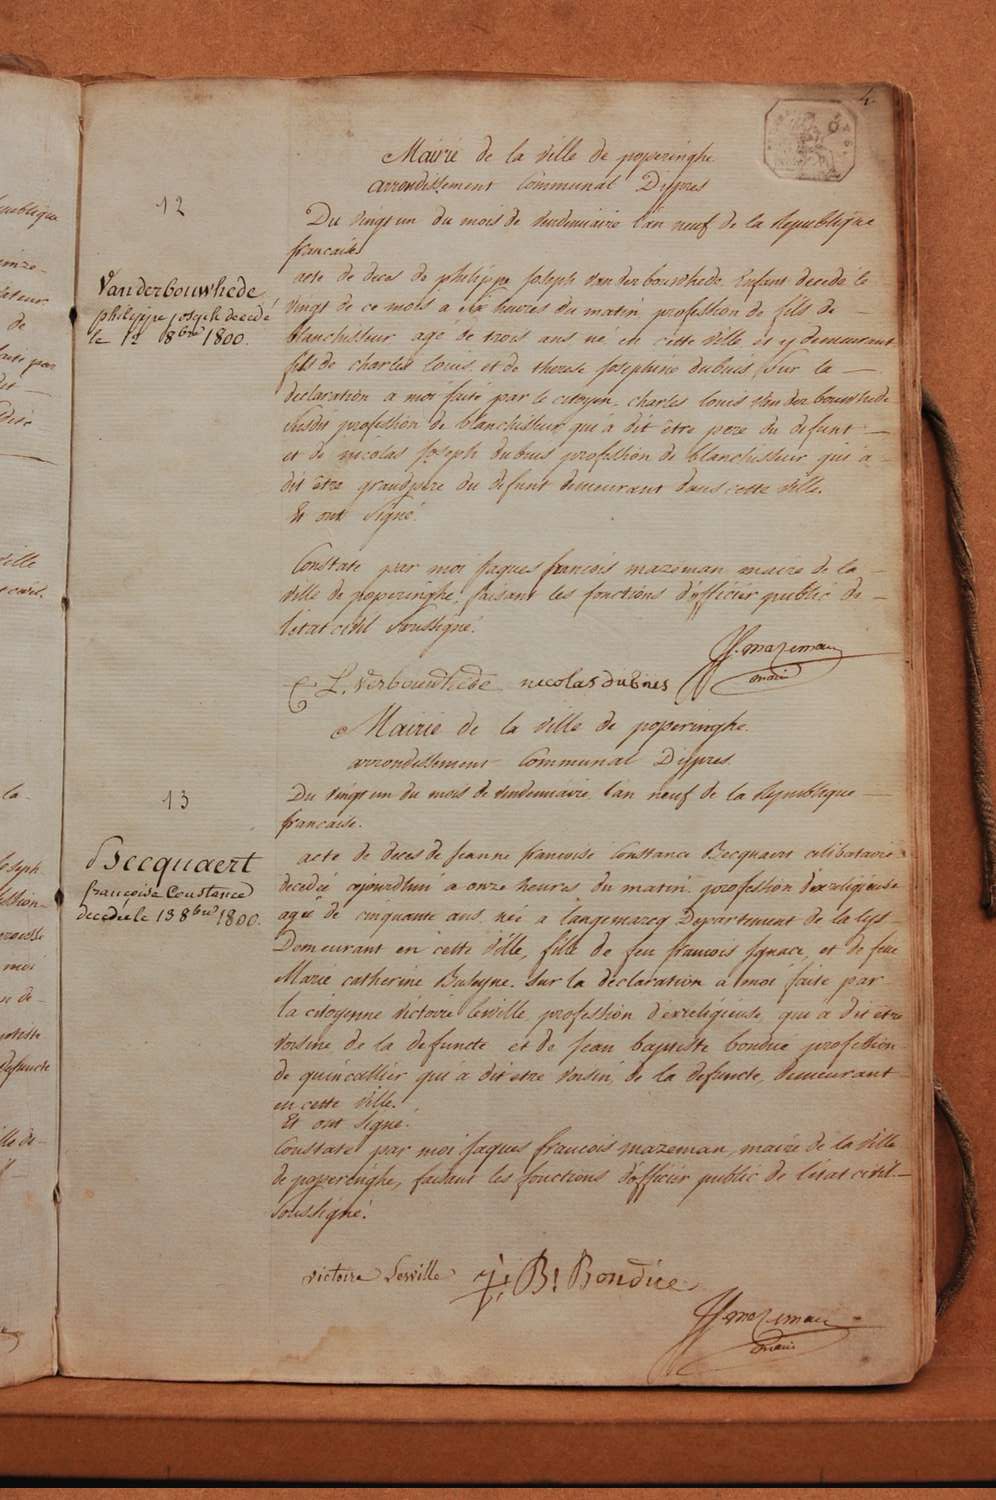 4
Mairie de la ville de poperinghe
arrondissement Communal D'ypres
12
Du vingt un du mois de vendemiaire l'an neuf de la Republique
francaise
Vanderbouwhede
philippe joseph decedé
le 12 8bre 1800.
acte de deces de philippe Joseph vanderbouwhede Enfant decedé le
vingt de ce mois a six heures du matin profession de fils de
blanchisseur agé de trois ans né en cette ville et y demeurant
fils de charles louis et de therese Josephine dubuis, Sur la
declaration a moi faite par le citoyen charles louis Vanderbouwhede
susdit profession de blanchisseur qui a dit être pere du defunt
et de nicolas Joseph dubuis profession de blanchisseur qui a
dit être grandpere du defunt demeurant dans cette ville.
Et ont signé.
Constaté par moi jaques francois mazeman maire de la
ville de poperinghe, faisant les fonctions d'officier public de
l'etat civil Soussigné.
JF. mazeman
maire
C L. verbouwhede nicolas dubuis
Mairie de la ville de poperinghe.
arrondissement Communal D'ypres.
13
Du vingt un du mois de vendemiaire l'an neuf de la Republique
francaise.
Becquaert
françoise Constance
decedée le 13 8bre 1800.
acte de deces de Jeanne francoise Constance Becquaert celibataire
decedée ajourdhui a onze heures du matin profession d'exreligieuse
agée de cinquante ans, née a langemarcq Departement de la lys
Demeurant en cette ville, fille de feu francois Ignace, et de feue
Marie catherine. Sur la declaration a moi faite par
la citoyenne victoire Leville profession d'exreligieuse, qui a dit etre
voisine de la defuncte et de jean baptiste bondue profession
de quincallier qui a dit etre voisin, de la defuncte, demeurant
en cette ville.
Et ont signé.
Constaté par moi jaques francois mazeman, maire de la ville
de poperinghe, faisant les fonctions d'officier public de l'etat civil
soussigné.
victoire Leville J: Bt Bondue
JF. mazeman
maire